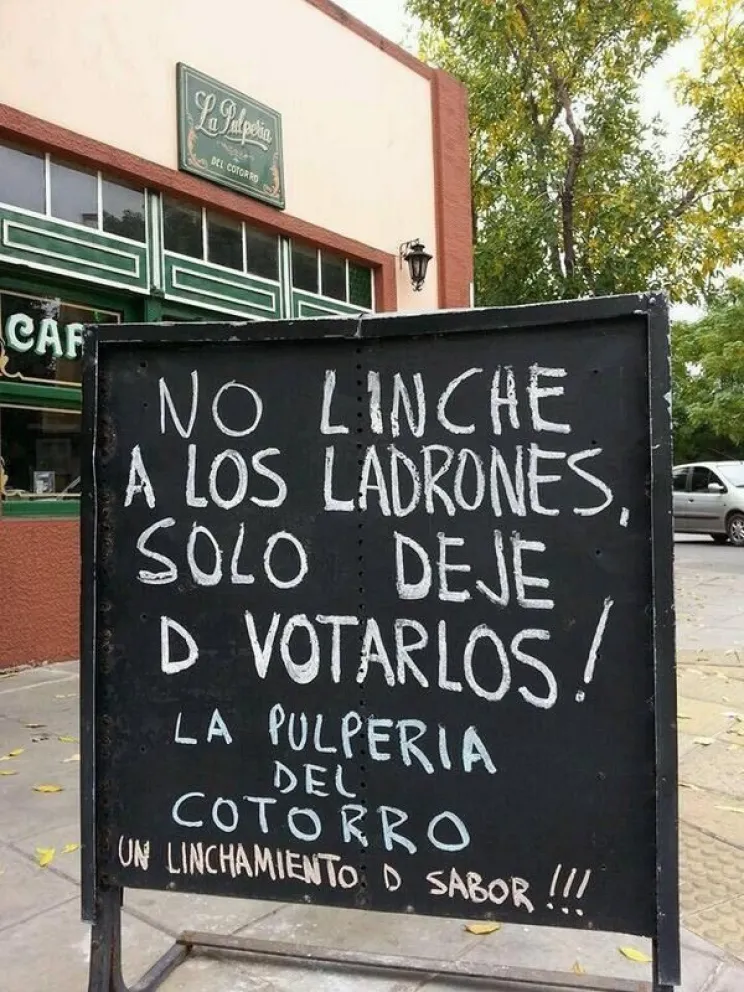 La Pulperia
DEL COTORRO
CAF
NO LINCHE
A LOS LADRONES,
SOLO DEJE
D VOTARLOS!
LA PULPERIA
DEL
COTORRO
UN LINCHAMIENTO D SABOR!!!